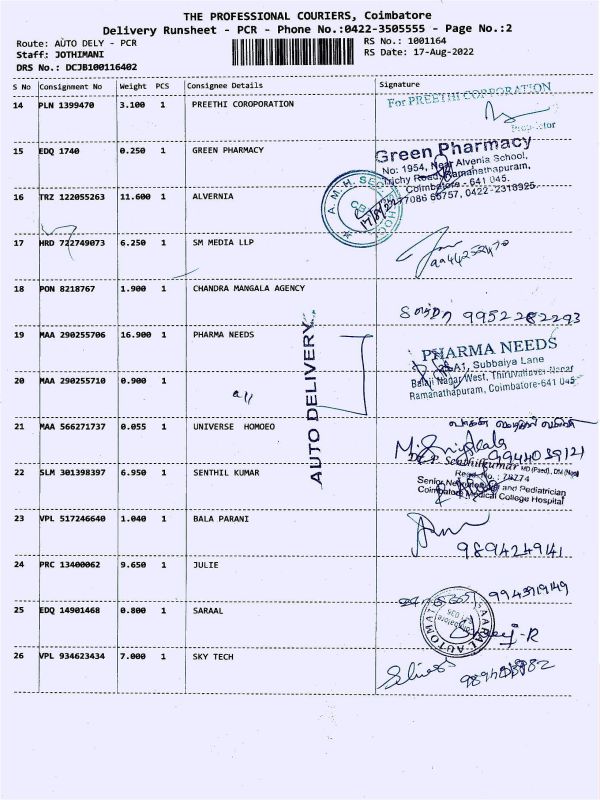 THE PROFESSIONAL COURIERS, Coimbatore
Delivery Runsheet - PCR - Phone No.:0422-3505555 - Page No.:2
Route: AUTO DELY - PCR RS No.: 1001164
Staff: JOTHIMANI RS Date: 17-Aug-2022
DRS No.: DCJB100116402
S No Consignment No Weight PCS Consignee Details Signature
14 PLN 1399470 3.100 1 PREETHI COROPORATION
For PREETHI CORPORATION
Proprietor
15 EDQ 1740 0.250 1 GREEN PHARMACY
Green Pharmacy
No: 1954, Near Alvenia School,
Trichy Road, Ramanathapuram,
Coimbatore - 641 045.
77086 66757, 0422-2318925
16 TRZ 122055263 11.600 1 ALVERNIA
A. M. H. SEC
CB
17/8/22
17 HRD 722749073 6.250 1 SM MEDIA LLP
18 PON 8218767 1.900 1 CHANDRA MANGALA AGENCY
9952282293
19 MAA 290255706 16.900 1 PHARMA NEEDS
PHARMA NEEDS
A1, Subbaiya Lane
Balaji Nagar West, Thiruvalluvar Nagar
Ramanathapuram, Coimbatore-641 045
20 MAA 290255710 0.900 1
AUTO DELIVERY
21 MAA 566271737 0.055 1 UNIVERSE HOMOEO
9944039121
22 SLM 301398397 6.950 1 SENTHIL KUMAR
Senthilkumar MD (Paed)., DM (Neuro)
Regd. No.: 78774
Senior Neurologist and Pediatrician
Coimbatore Medical College Hospital
23 VPL 517246640 1.040 1 BALA PARANI
9894249141
24 PRC 13400062 9.650 1 JULIE
9943919149
25 EDQ 14901468 0.800 1 SARAAL
SAARAL AUTOMAT
26 VPL 934623434 7.000 1 SKY TECH